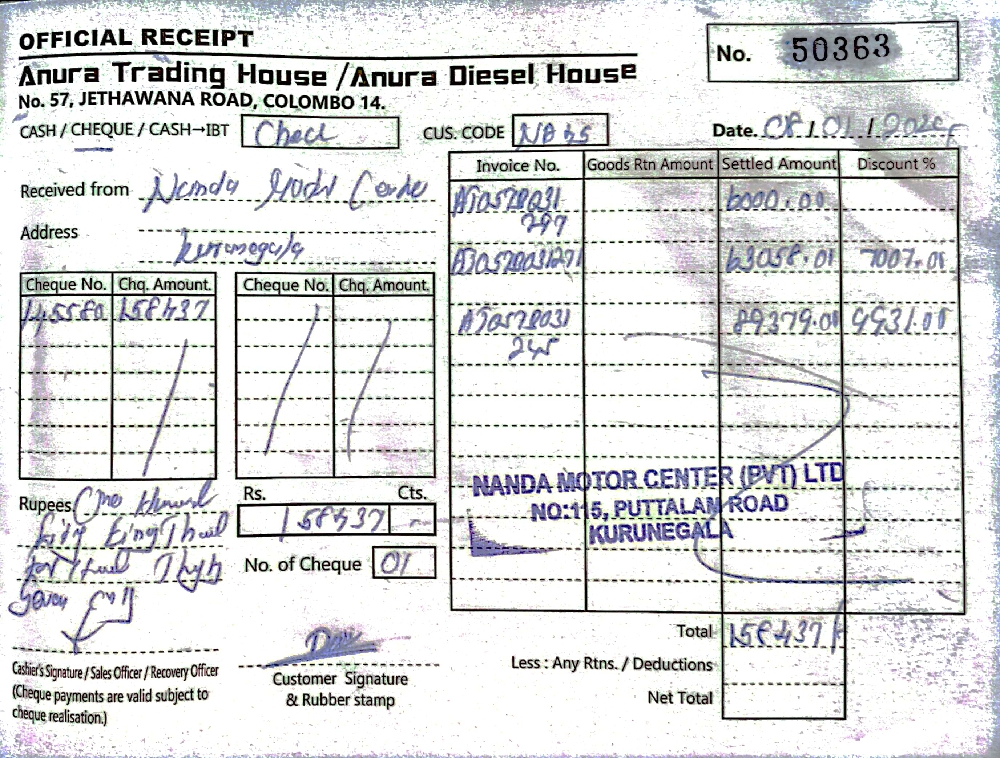 OFFICIAL RECEIPT
No. 50363
Anura Trading House / Anura Diesel House
No. 57, JETHAWANA ROAD, COLOMBO 14.
CASH / CHEQUE / CASH→IBT Check
CUS. CODE
Date. 08 / 01 /
Received from Nanda
Address
Kurunegala
Invoice No. Goods Rtn Amount Settled Amount Discount %
6000.00
297
63058.01 7007.01
89379.01
245
Cheque No. Chq. Amount. Cheque No. Chq. Amount.
145580 158437
NANDA MOTOR CENTER (PVT) LTD
NO:115, PUTTALAN ROAD
KURUNEGALA
Rupees
Rs. Cts.
158437
No. of Cheque 01
Total 158437
Less : Any Rtns. / Deductions
Net Total
Cashier's Signature / Sales Officer / Recovery Officer
(Cheque payments are valid subject to
cheque realisation.)
Customer Signature
& Rubber stamp